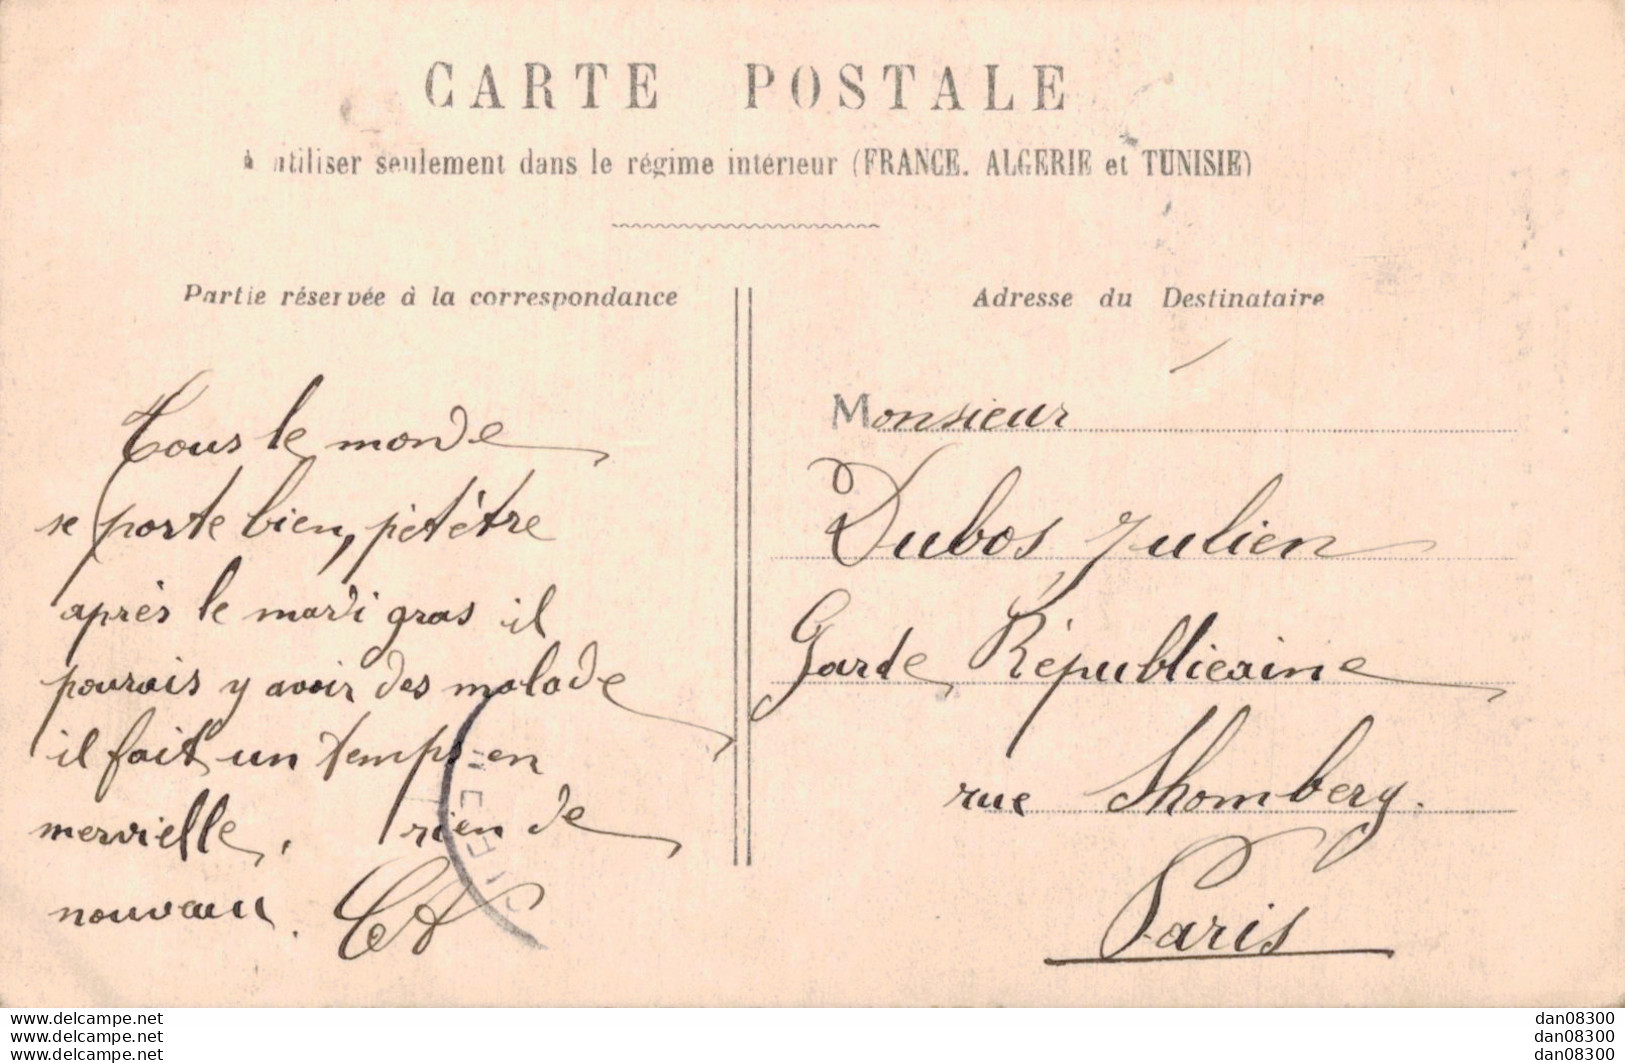 CARTE POSTALE
à utiliser seulement dans le régime intérieur (FRANCE. ALGERIE et TUNISIE)
Partie réservée à la correspondance
Tous le monde
se porte bien, pètètre
après le mardi gras il
pourais y avoir des malade
il fait un temps en
mervielle. rien de
nouveau.
Adresse du Destinataire
Monsieur
Dubos Julien
Garde Républicaine
rue Shomberg.
Paris
www.delcampe.net
www.delcampe.net
www.delcampe.net
dan08300
dan08300
dan08300